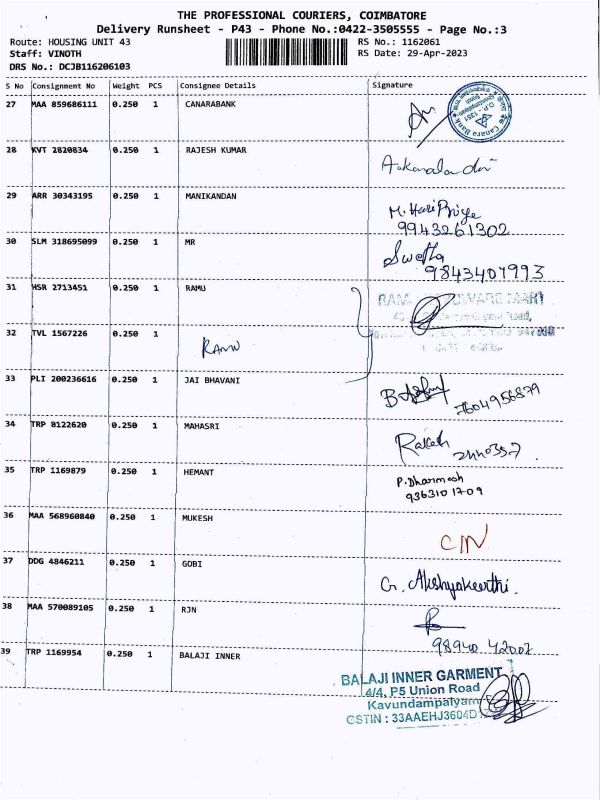 THE PROFESSIONAL COURIERS, COIMBATORE
Delivery Runsheet - P43 - Phone No.:0422-3505555 - Page No.:3
Route: HOUSING UNIT 43 RS No.: 1162061
Staff: VINOTH RS Date: 29-Apr-2023
DRS No.: DCJB116206103
S No Consignment No Weight PCS Consignee Details Signature
27 MAA 859686111 0.250 1 CANARABANK
Canara Bank
28 KVT 2820834 0.250 1 RAJESH KUMAR
29 ARR 30343195 0.250 1 MANIKANDAN M. Hari Priya
9943261302
30 SLM 318695099 0.250 1 MR Swetha
9843407993
31 HSR 2713451 0.250 1 RAMU
32 TVL 1567226 0.250 1 RAMU
33 PLI 200236616 0.250 1 JAI BHAVANI 7604956879
34 TRP 8122620 0.250 1 MAHASRI Rakesh
35 TRP 1169879 0.250 1 HEMANT P. Dharmesh
9363101709
36 MAA 568960840 0.250 1 MUKESH
37 DDG 4846211 0.250 1 GOBI G. Akshyakeerthi.
38 MAA 570089105 0.250 1 RJN
98940 42007
39 TRP 1169954 0.250 1 BALAJI INNER
BALAJI INNER GARMENT
4/4, P5 Union Road
Kavundampalyam
GSTIN : 33AAEHJ3604D1